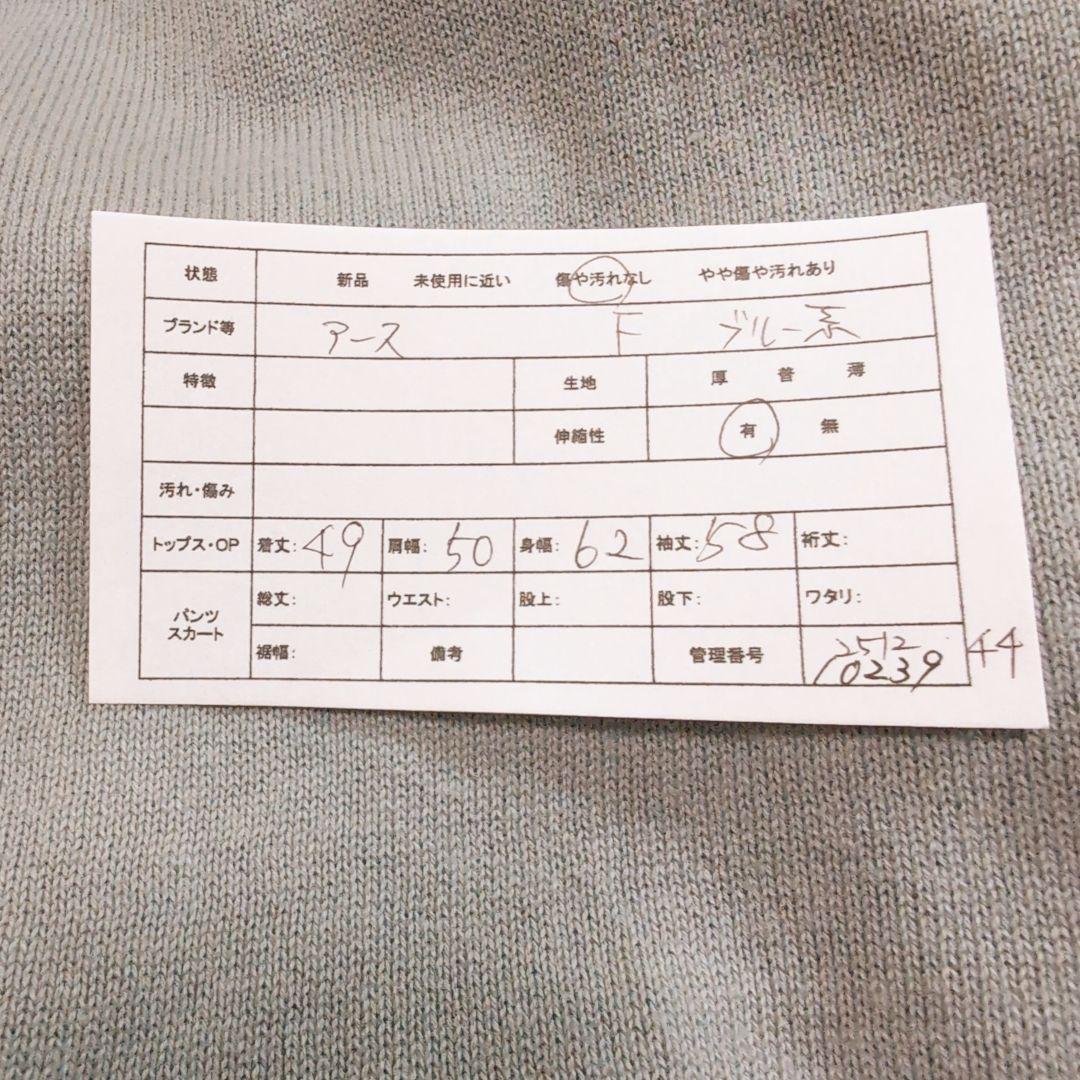 状態 新品 未使用に近い 傷や汚れなし やや傷や汚れあり
ブランド等 アース F ブルー系
特徴 生地 厚 普 薄
伸縮性 有 無
汚れ・傷み
トップス・OP 着丈:49 肩幅:50 身幅:62 袖丈:58 裄丈:
パンツ スカート 総丈: ウエスト: 股上: 股下: ワタリ:
裾幅: 備考 管理番号 2512 10239 44